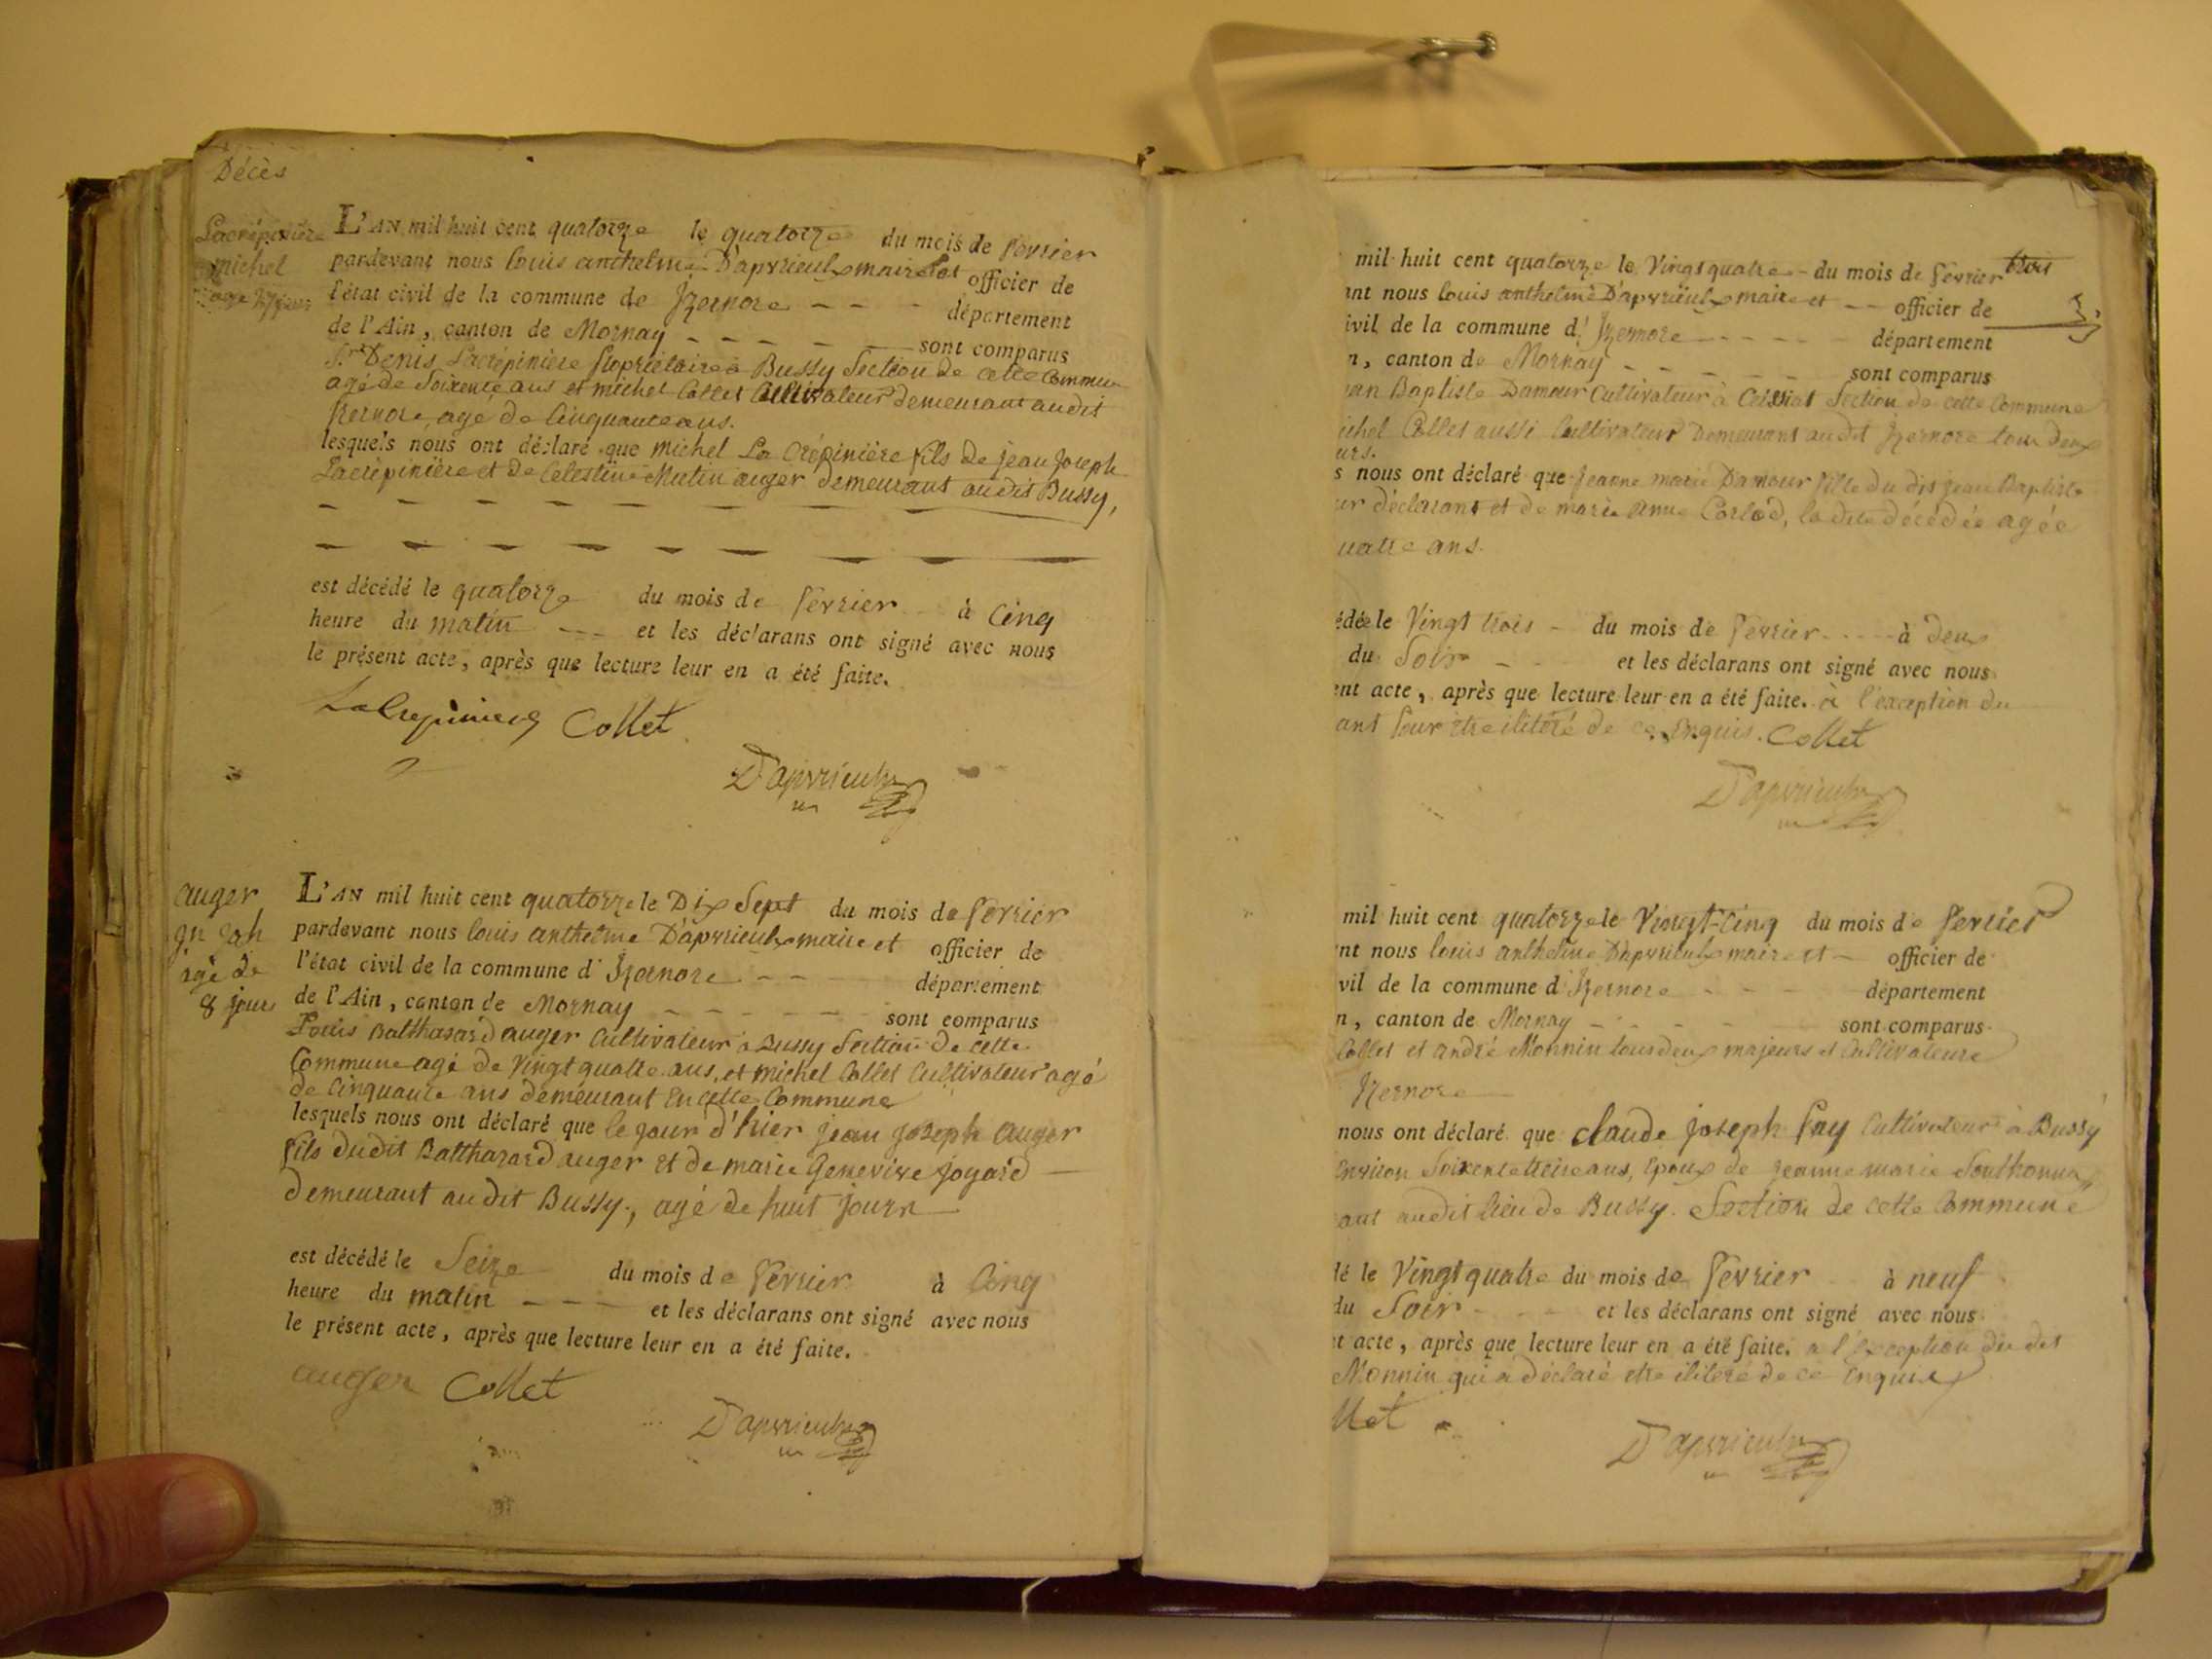 Décès
Lacrépinière
michel
L'AN mil huit cent quatorze le quatorze du mois de fevrier
pardevant nous louis anthelme D'apvrieulx maire et officier de
l'état civil de la commune de Izernore département
de l'Ain, canton de Mornay sont comparus
Sr. Denis Lacrépinière propriétaire à Bussy Section de cette Commune
agé de Soixente ans et michel Collet Cultivateur demeurant audit
Izernore, agé de Cinquante ans.
lesquels nous ont déclaré que michel La Crépinière fils de jean Joseph
Lacrépinière et de Celestine Mutin auger demeurant audit Bussy,
est décédé le quatorze du mois de fevrier à Cinq
heure du matin et les déclarans ont signé avec nous
le présent acte, après que lecture leur en a été faite.
LaCrepiniere Collet
D'apvrieulx
auger
jn jph
agé de
8 jours
L'AN mil huit cent quatorze le Dix Sept du mois de fevrier
pardevant nous louis anthelme D'apvrieulx maire et officier de
l'état civil de la commune d'Izernore département
de l'Ain, canton de Mornay sont comparus
Louis Balthasard auger Cultivateur à Bussy Section de cette
Commune agé de Vingt quatre ans, et michel Collet Cultivateur agé
de Cinquante ans demeurant en cette Commune
lesquels nous ont déclaré que le jour d'hier jean joseph auger
fils dudit Balthazard auger et de marie Genevive joyard
demeurant audit Bussy, agé de huit jours
est décédé le Seize du mois de fevrier à Cinq
heure du matin et les déclarans ont signé avec nous
le présent acte, après que lecture leur en a été faite.
auger Collet
D'apvrieulx
trois
3.
mil huit cent quatorze le Vingt quatre du mois de fevrier
ant nous louis anthelme D'apvrieulx maire et officier de
ivil de la commune d'Izernore département
n, canton de Mornay sont comparus
an Baptiste Damour Cultivateur à Ceissiat Section de cette Commune
ichel Collet aussi Cultivateur Demeurant audit Izernore tous deux
urs.
s nous ont déclaré que jeanne marie Damour fille du dit jean Baptiste
ur déclarant et de marie anne Corlod, la dite décédée agée
uatre ans.
édée le Vingt trois du mois de fevrier à deux
du Soir et les déclarans ont signé avec nous
ent acte, après que lecture leur en a été faite. à l'exception du
ant pour être ilitéré de ce Enquis. Collet
D'apvrieulx
mil huit cent quatorze le Vingt-Cinq du mois de fevrier
nt nous louis anthelme D'apvrieulx maire et officier de
vil de la commune d'Izernore département
n, canton de Mornay sont comparus
Collet et andré Monnin tous deux majeurs et Cultivateurs
Izernore
nous ont déclaré que claude joseph fay Cultivateur à Bussy
Environ Soixente treize ans, Epoux de jeanne marie Southonnax
ant audit lieu de Bussy. Section de cette Commune
dé le Vingt quatre du mois de fevrier à neuf
du Soir et les déclarans ont signé avec nous
t acte, après que lecture leur en a été faite. a l'Exception du dit
Monnin qui a déclaré être ilitéré de ce Enquis
llet
D'apvrieulx